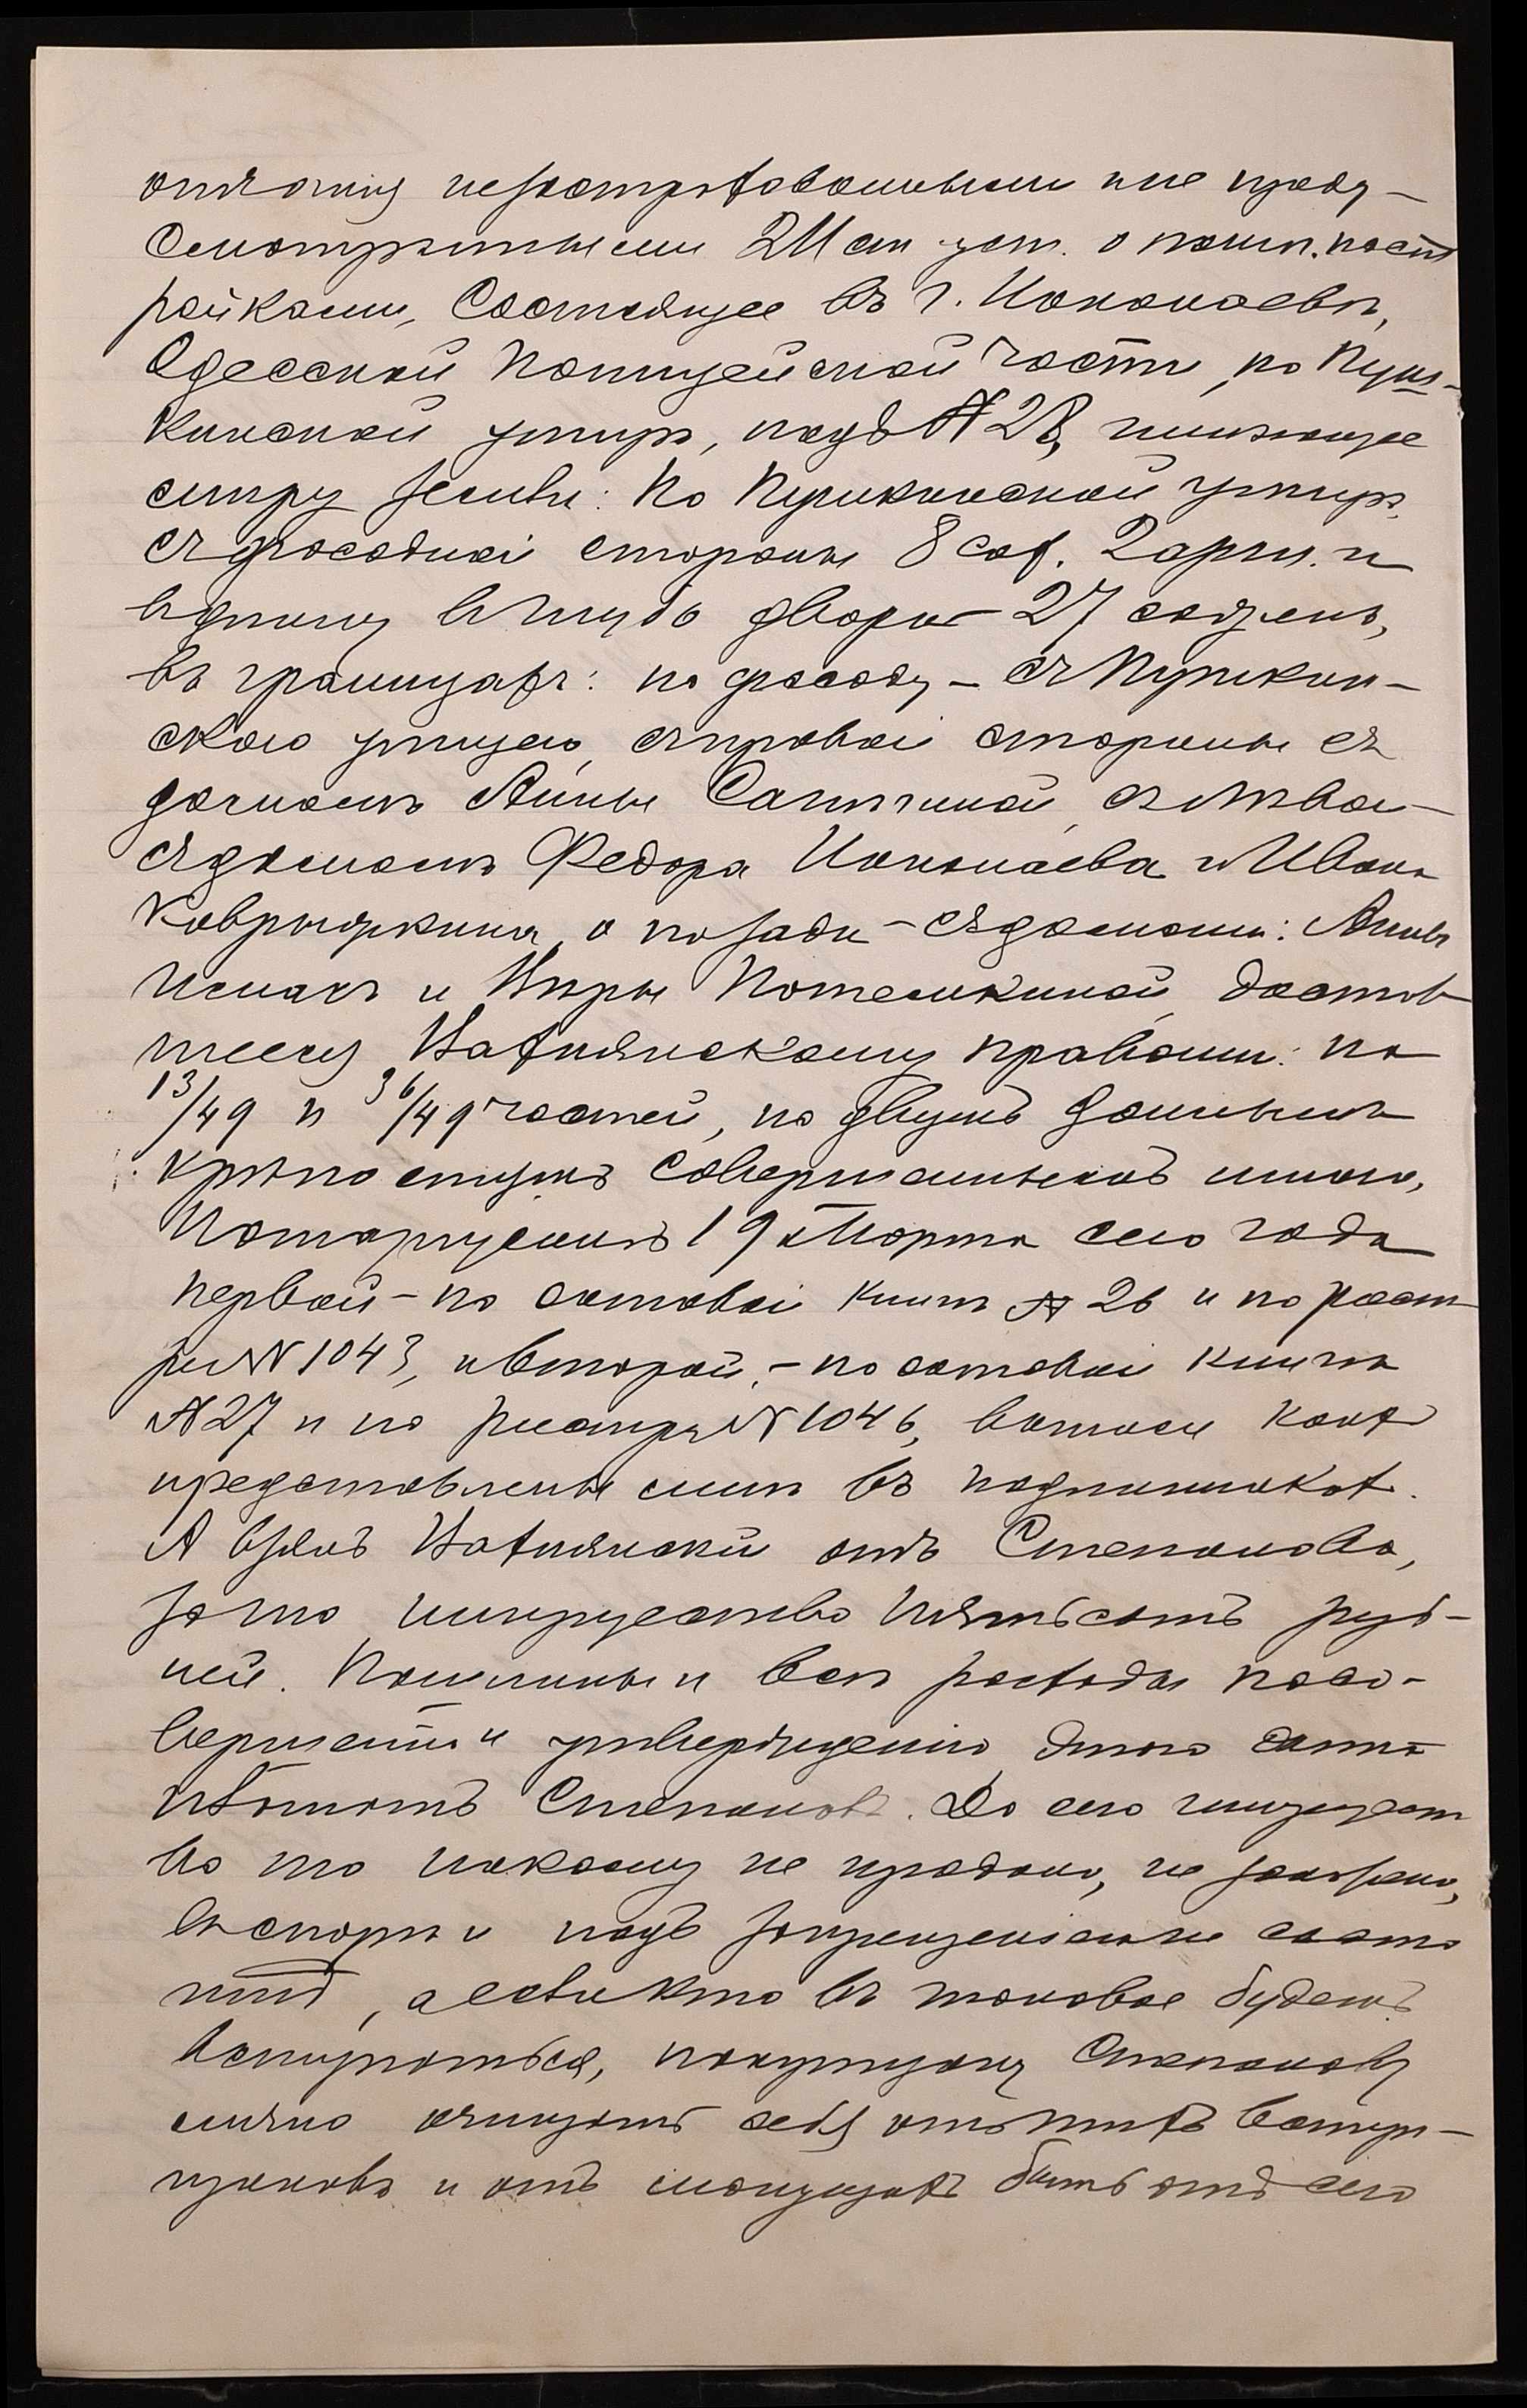 опаснія незастрахованными и не преду-
смотренными 211 ст. уст. о пошл. пост
ройками, состоящее въ г. Николаевѣ,
Одесской полицейской части, по Пуш-
кинской улицѣ, подъ № 28, имѣющее
мѣру земли: по Пушкинской улицѣ,
съ фасадной стороны 8 саж. 2 арш. и
въ длину въ глубь двора 27 сажень,
въ границахъ: по фасаду - съ Пушкин-
скою улицею, съ правой стороны съ
домомъ Анны, съ лѣвой
съ домомъ Федора Николаева и Ивана
Коврыжкина, а позади - съ домами: Анны
и Вѣры Потемкиной, достав
шееся правами: на
13/49 и 36/49 частей, по двумъ даннымъ
крѣпостямъ совершеннымъ у меня,
Нотаріуса 19 Марта сего года
первой - по актовой книгѣ № 26 и по реест
ру № 1043, и второй, - по актовой книгѣ
№ 27 и по реестру № 1046, выписи коихъ
представлены мнѣ въ подлинникахъ.
А взялъ отъ Степанова,
за то имущество пятьсотъ руб-
лей. Пошлины и всѣ расходы по со-
вершенію и утвержденію этого акта
платитъ Степановъ. До сего имущест
во то никому не продано, не заложено,
въ спорѣ и подъ запрещеніемъ не состо
итъ, а если кто въ таковое будетъ
вступаться, покупщику Степанову
лично очищать себя отъ тѣхъ вступ-
щиковъ и отъ могущихъ быть отъ сего